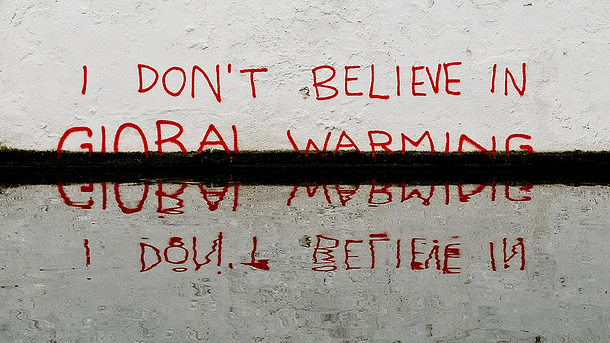 I DON'T BELIEVE IN
GLOBAL WARMING